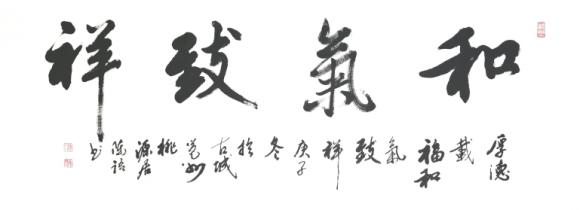 和氣致祥
厚德
載
福和
氣
致
祥
庚子
冬
於
古城
州
桃
源居
书